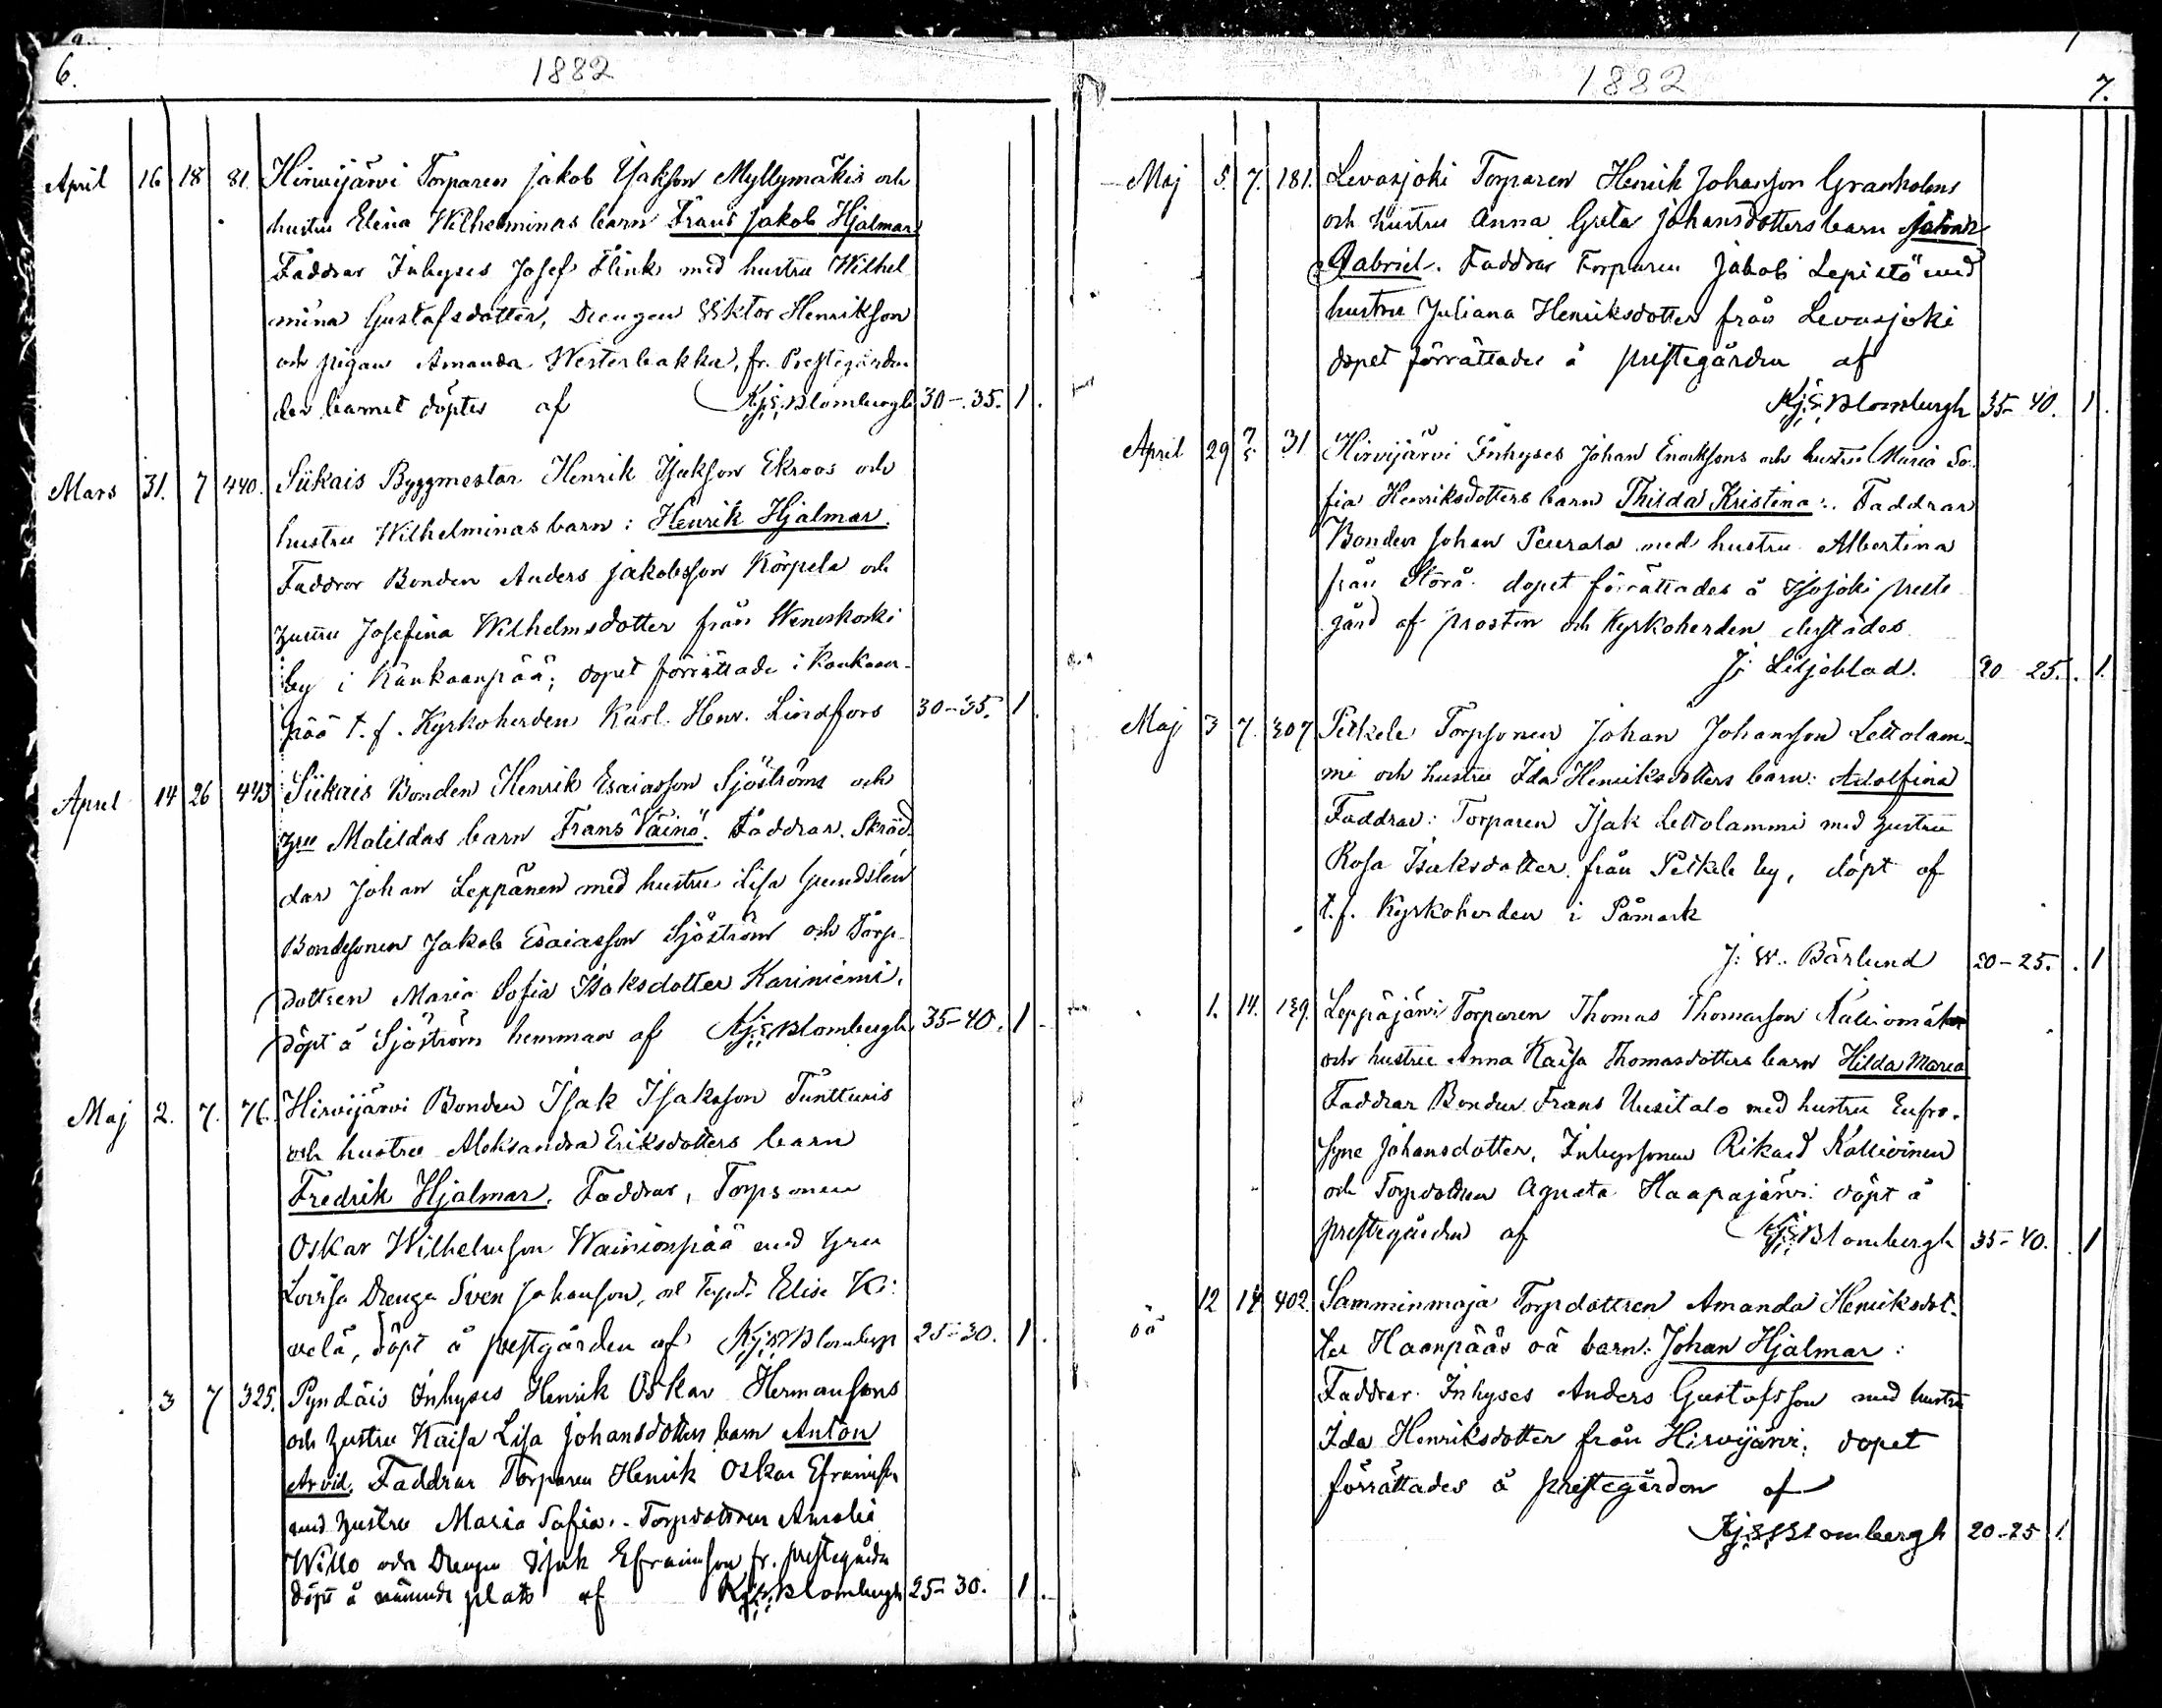 6.
1882
April 16 18 81. Hirvijärvi Torparen Jakob Isakson Myllymäkis och
hustru Elina Wilhelminas barn Frans Jakob Hjalmar
Faddrar Inhyses Josef Flink med hustru Wilhel
mina Gustafsdotter, Drengen Viktor Henrikson
och pigan Amanda Westerbakka, fr. Prestegården
der barnet döptes af Kj: E: Blombergh 30-35. 1.
Mars 31. 7 440. Siikais Byggmestar Henrik Isakson Ekroos och
hustru Wilhelminas barn: Henrik Hjalmar.
Faddrar Bonden Anders Jakobsson Korpela och
hustru Josefina Wilhelmsdotter från Weneskoski
by i Kankaanpää; dopet förrättade i Kankaan-
pää t. f. Kyrkoherden Karl. Henr. Lindfors 30-35. 1.
April 14 26 443 Siikais Bonden Henrik Esaiasson Sjöströms och
hru Matildas barn Frans Väinö. Faddrar. Skräd
dar Johan Leppänen med hustru Lisa Grundslén
Bondsonen Jakob Esaiasson Sjöström och Torp-
dottren Maria Sofia Isaksdotter Kariniemi.
döpt å Sjöström hemman af Kj: E: Blombergh 35-40. 1.
Maj 2. 7. 76. Hirvijärvi Bonden Isak Isaksson Tunturis
och hustru Aleksandra Eriksdotters barn
Fredrik Hjalmar. Faddrar, Torpsonen
Oskar Wilhelmson Wainionpää med hru
Lovisa Drenge Sven Johanson, och Torpd. Elisa Ki:
velä, döpt å prestgården af Kj: E: Blombergh 25-30. 1.
3 7 325. Pyndäis Inhyses Henrik Oskar Hermansons
och hustru Kaisa Lisa Johansdotters barn Anton
Arvid. Faddrar Torparen Henrik Oskar Efraimson
med hustru Maria Sofia. Torpdottren Amalia
Willo och Drengen Isak Efraimson fr. prestegården
döpt å nämnde plats af Kj: E: Blombergh 25-30. 1.
1882
7.
Maj 5. 7. 181. Levasjoki Torparen Henrik Johanson Granholms
och hustru Anna Greta Johansdotters barn Johan
Gabriel. Faddrar Torparen Jakob Lepistö med
hustru Juliana Henriksdotter från Levasjoki
dopet förrättades å prestegården af
Kj: E: Blombergh 35-40. 1.
April 29 7/5 31 Hirvijärvi Inhyses Johan Enoksons och hustru Maria So-
fia Henriksdotters barn Thilda Kristina: Faddrar
Bonden Johan Peurala med hustru Albertina
från Storå. dopet förrättades å Isojoki preste
gård af Prosten och Kyrkoherden derstädes
J: Liljeblad. 20-25. 1.
Maj 3 7. 307 Petkele Torpsonen Johan Johanson Lettolam-
mi och hustru Ida Henriksdotters barn: Adolfina
Faddrar: Torparen Isak Lettolammi med hustru
Rosa Isaksdotter från Petkele by, döpt af
t.f. Kyrkoherden i Påmark
J: W. Bärlund 20-25. 1
1. 14. 139. Leppäjärvi Torparen Thomas Thomasson Kalliomäki
och hustru Anna Kaisa Thomasdotters barn Hilda Maria
Faddrar Bonden Frans Uusitalo med hustru Eufro-
syne Johansdotter, Inhysesonen Rikard Kallioinen
och Torpdottren Agneta Haapajärvi döpt å
prestegården af Kj: E: Blombergh 35-40. 1
oä 12 14 402. Samminmaja Torpdottren Amanda Henriksdot-
ter Haanpääs oä barn: Johan Hjalmar:
Faddrar Inhyses Anders Gustafsson med hustru
Ida Henriksdotter från Hirvijärvi. dopet
förrättades å prestegården af
Kj: E: Blombergh 20-25 1.